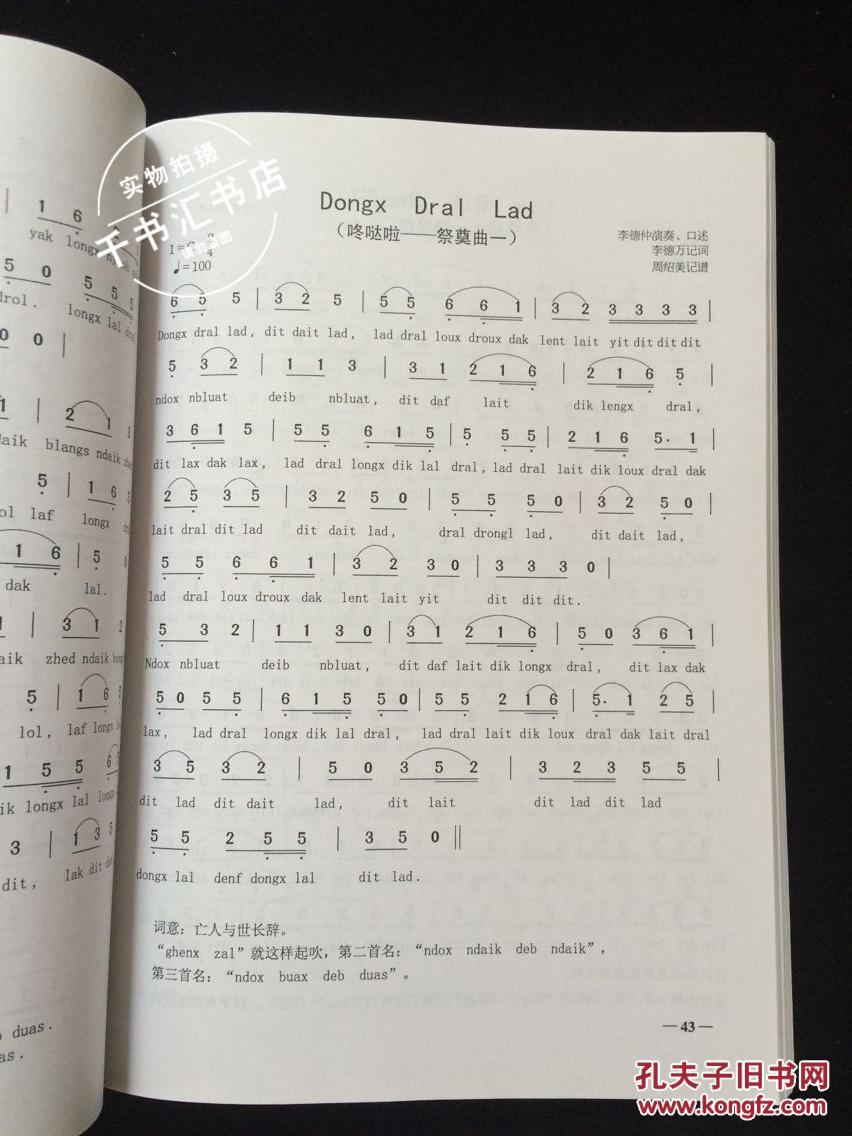 1 6
yak longx
5 0 5 5 5
drol. longx lal
0 0
2 1
daik blangs ndaik
5 1 6
laf longx
1 6 5 0
dak lal.
3 1 2
zhed ndaik
5 1 6
lol, laf longx
1 5 5 6
longx lal longx
3 1 3 5
dit, lak dit
duas.
as.
实物拍摄
千书汇书店
Dongx Dral Lad
(咚哒啦——祭奠曲一)
♩=100
李德仲演奏、口述
李德万记词
周绍美记谱
6 5 5 | 3 2 5 | 5 5 6 6 1 | 3 2 3 3 3 3 |
Dongx dral lad, dit dait lad, lad dral loux droux dak lent lait yit dit dit dit
5 3 2 | 1 1 3 | 3 1 2 1 6 | 2 1 6 5 |
ndox nbluat deib nbluat, dit daf lait dik lengx dral,
3 6 1 5 | 5 5 6 1 5 | 5 5 5 | 2 1 6 5· 1 |
dit lax dak lax, lad dral longx dik lal dral, lad dral lait dik loux dral dak
2 5 3 5 | 3 2 5 0 | 5 5 5 0 | 3 2 5 0 |
lait dral dit lad dit dait lad, dral drongl lad, dit dait lad,
5 5 6 6 1 | 3 2 3 0 | 3 3 3 0 |
lad dral loux droux dak lent lait yit dit dit dit.
5 3 2 | 1 1 3 0 | 3 1 2 1 6 | 5 0 3 6 1 |
Ndox nbluat deib nbluat, dit daf lait dik longx dral, dit lax dak
5 0 5 5 | 6 1 5 5 0 | 5 5 2 1 6 | 5· 1 2 5 |
lax, lad dral longx dik lal dral, lad dral lait dik loux dral dak lait dral
3 5 3 2 | 5 0 3 5 2 | 3 2 3 5 5 |
dit lad dit dait lad, dit lait dit lad dit lad
5 5 2 5 5 | 3 5 0 ‖
dongx lal denf dongx lal dit lad.
词意：亡人与世长辞。
“ghenx zal”就这样起吹，第二首名：“ndox ndaik deb ndaik”，
第三首名：“ndox buax deb duas”。
— 43 —
孔夫子旧书网
www.kongfz.com